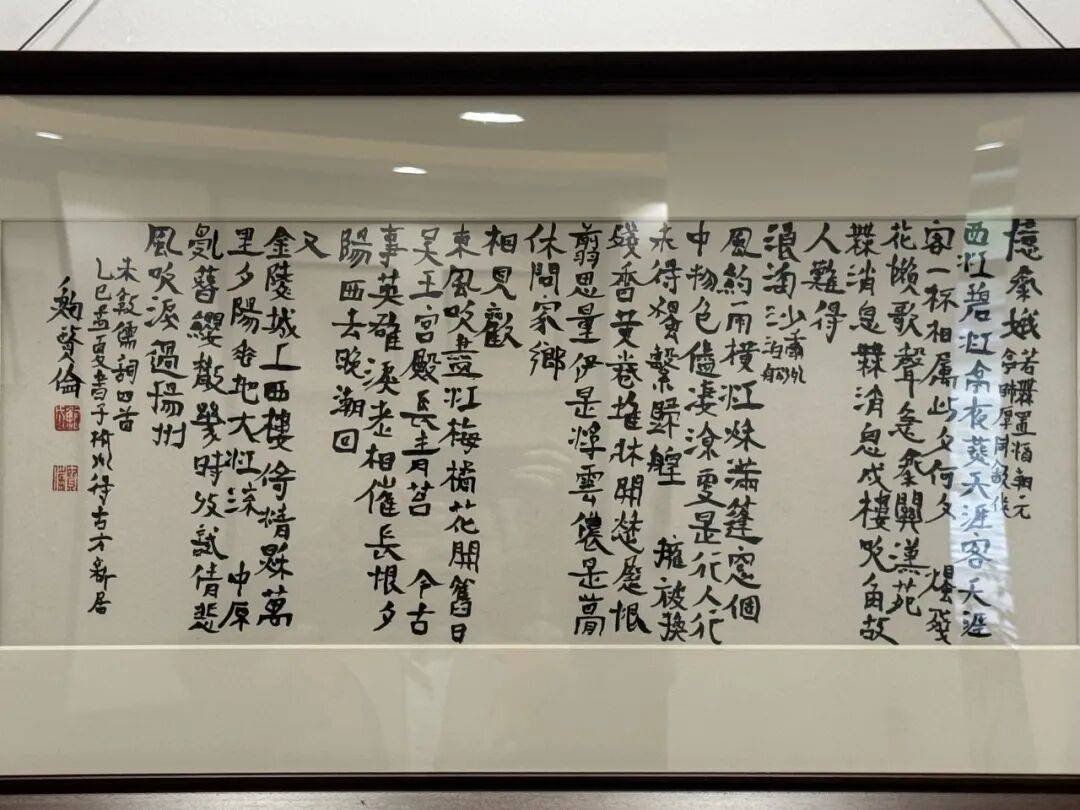 憶秦娥 若無置酒朝元
亭師厚同飲作
西江碧江亭夜燕天涯客天涯
客一杯相属此夕何夕 爥殘
花懶歌聲急秦關漢苑
無消息無消息戍樓吹角故
人難得
浪淘沙 康州
泊船
風約雨橫江秋滿篷窓個
中物色儘淒涼更是行人行
未得獨繫歸艎 擁被換
殘香黄卷堆牀開愁展恨
翦思量伊是浮雲儂是夢
休問家鄉
相見歡
東風吹盡江梅橘花開舊日
吴王宮殿長青苔 今古
事英雄淚老相催長恨夕
陽西去晚潮回
又
金陵城上西樓倚清秋萬
里夕陽垂地大江流 中原
亂簪纓散幾時收試倩悲
風吹淚過揚州
朱敦儒詞四首
乙巳孟夏書于杭州得古方新居
賢倫